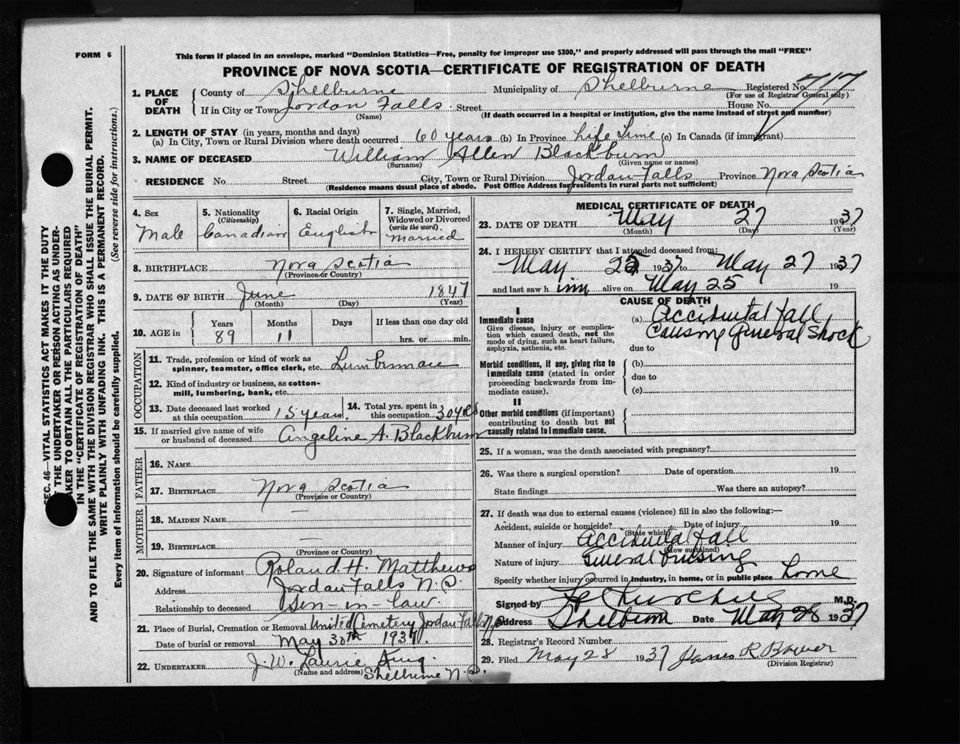 FORM 6
This form if placed in an envelope, marked "Dominion Statistics—Free, penalty for improper use $300," and properly addressed will pass through the mail "FREE"
PROVINCE OF NOVA SCOTIA—CERTIFICATE OF REGISTRATION OF DEATH
1. PLACE OF DEATH County of Shelburne Municipality of Shelburne Registered No. 717
(For use of Registrar General only)
If in City or Town Jordan Falls Street House No.
(Name) (If death occurred in a hospital or institution, give the name instead of street and number)
2. LENGTH OF STAY (in years, months and days)
(a) In City, Town or Rural Division where death occurred 60 years (b) In Province life time (c) In Canada (if immigrant)
3. NAME OF DECEASED William Allen Blackburn
(Surname) (Given name or names)
RESIDENCE No. Street City, Town or Rural Division Jordan Falls Province Nova Scotia
(Residence means usual place of abode. Post Office Address for residents in rural parts not sufficient)
4. Sex Male
5. Nationality (Citizenship) Canadian
6. Racial Origin English
7. Single, Married, Widowed or Divorced (write the word) Married
8. BIRTHPLACE Nova Scotia
(Province or Country)
9. DATE OF BIRTH June 1847
(Month) (Day) (Year)
10. AGE in Years Months Days If less than one day
89 11 hrs. or min.
OCCUPATION
11. Trade, profession or kind of work as spinner, teamster, office clerk, etc. Lumberman
12. Kind of industry or business, as cotton-mill, lumbering, bank, etc.
13. Date deceased last worked at this occupation 15 years
14. Total yrs. spent in this occupation 30 yrs
15. If married give name of wife or husband of deceased Angeline A. Blackburn
FATHER
16. NAME
17. BIRTHPLACE Nova Scotia
(Province or Country)
MOTHER
18. MAIDEN NAME —
19. BIRTHPLACE —
(Province or Country)
20. Signature of informant Roland. H. Matthews
Address Jordan Falls N.S.
Relationship to deceased Son-in-law
21. Place of Burial, Cremation or Removal United Cemetery Jordan Falls N.S.
Date of burial or removal May 30th 1937.
22. UNDERTAKER J. W. King.
(Name and address) Shelburne N.S.
MEDICAL CERTIFICATE OF DEATH
23. DATE OF DEATH May 27 1937
(Month) (Day) (Year)
24. I HEREBY CERTIFY that I attended deceased from:
May 25 1937 to May 27 1937
and last saw him alive on May 25 19
CAUSE OF DEATH
I
Immediate cause
Give disease, injury or complication which caused death, not the mode of dying, such as heart failure, asphyxia, asthenia, etc.
(a) Accidental Fall
Causing General Shock
due to
Morbid conditions, if any, giving rise to immediate cause (stated in order proceeding backwards from immediate cause).
(b)
due to
(c)
II
Other morbid conditions (if important) contributing to death but not causally related to immediate cause.
25. If a woman, was the death associated with pregnancy?
26. Was there a surgical operation? Date of operation 19
State findings Was there an autopsy?
27. If death was due to external causes (violence) fill in also the following:—
Accident, suicide or homicide? Date of injury 19
(State which)
Manner of injury Accidental Fall
(How sustained)
Nature of injury General Bruising
Specify whether injury occurred in industry, in home, or in public place Home
Signed by Churchill M.D.
Address Shelburne Date May 28 1937
28. Registrar's Record Number
29. Filed May 28 1937 James R Bower
(Division Registrar)
SEC. 46—VITAL STATISTICS ACT MAKES IT THE DUTY
OF THE UNDERTAKER OR PERSON ACTING AS UNDERTAKER TO OBTAIN ALL THE PARTICULARS REQUIRED
IN THE "CERTIFICATE OF REGISTRATION OF DEATH"
AND TO FILE THE SAME WITH THE DIVISION REGISTRAR WHO SHALL ISSUE THE BURIAL PERMIT.
WRITE PLAINLY WITH UNFADING INK. THIS IS A PERMANENT RECORD.
Every item of information should be carefully supplied. (See reverse side for instructions.)